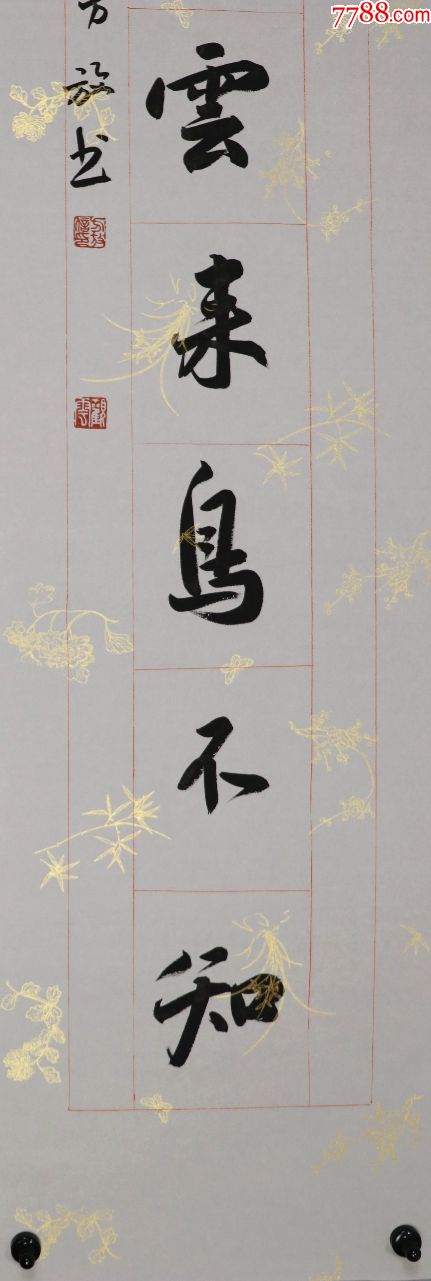 7788.com
雲来鳥不知
方旋书